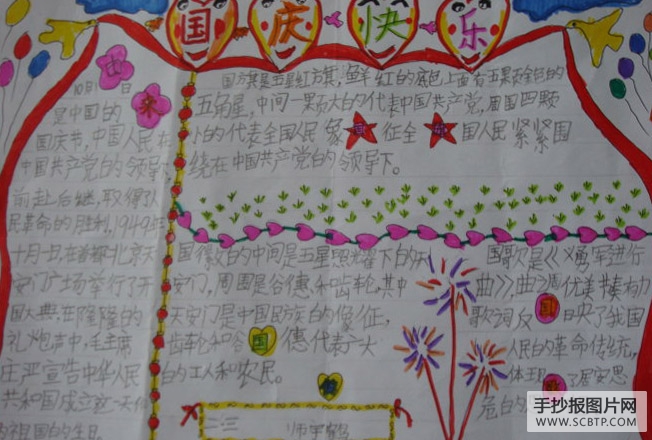 国庆快乐
由来
10月1日
是中国的
国庆节,中国人民在
中国共产党的领导下
前赴后继,取得了人
民革命的胜利,1949年
十月一日,在首都北京天
安门广场举行了开
国大典,在隆隆的
礼炮声中,毛主席
庄严宣告中华人民
共和国成立
祖国的生日
国旗是五星红方旗,鲜红的底色上面有五颗金色的
五角星,中间一颗大的代表中国共产党,周围四颗
小的代表全国人民象征全国人民紧紧围
绕在中国共产党的领导下。
国徽的中间是五星照耀下的天
安门,周围是谷德和齿轮,其中
天安门是中国民族的像征,
齿轮和谷德代表广大
的工人和农民。
国歌是《义勇军进行
曲》,曲调优美奏有力
歌词反映了我国
人民的革命传统,
体现了居安思
危的
手抄报图片网
WWW.SCBTP.COM